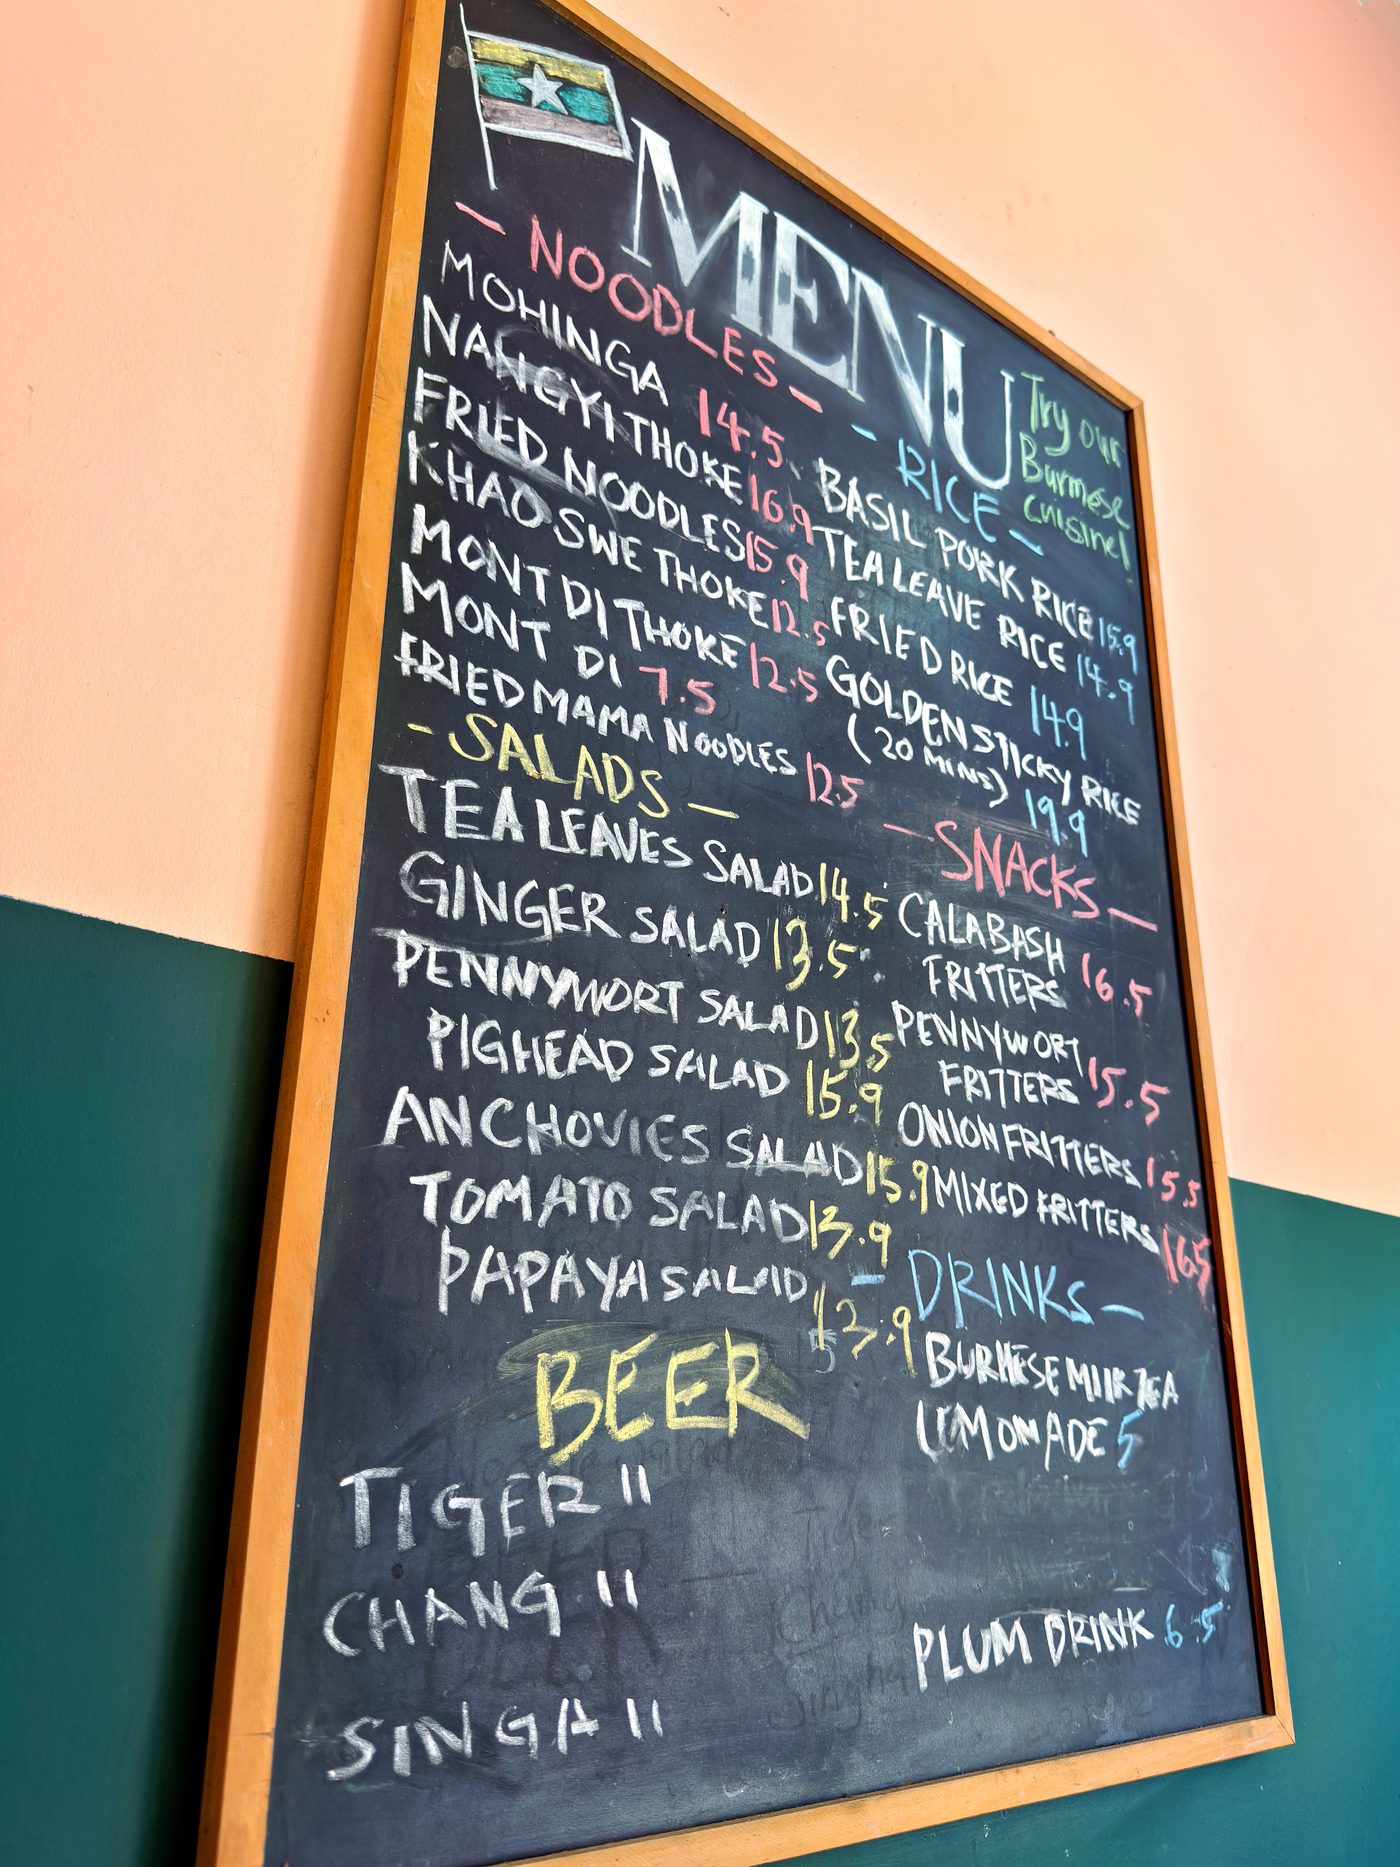 MENU
Try our
Burmese
cuisine!
- NOODLES -
MOHINGA 14.5
NANGYI THOKE 16.9
FRIED NOODLES 15.9
KHAO SWE THOKE 12.5
MONT DI THOKE 12.5
MONT DI 7.5
FRIED MAMA NOODLES 12.5
- SALADS -
TEA LEAVES SALAD 14.5
GINGER SALAD 13.5
PENNYWORT SALAD 13.5
PIGHEAD SALAD 15.9
ANCHOVIES SALAD 15.9
TOMATO SALAD 13.9
PAPAYA SALAD 13.9
BEER
TIGER 11
CHANG 11
SINGA 11
- RICE -
BASIL PORK RICE 15.9
TEA LEAVE RICE 14.9
FRIED RICE 14.9
GOLDEN STICKY RICE
(20 MINS) 19.9
- SNACKS -
CALABASH
FRITTERS 16.5
PENNYWORT
FRITTERS 15.5
ONION FRITTERS 15.5
MIXED FRITTERS 16.5
- DRINKS -
BURMESE MILK TEA
LEMONADE 5
PLUM DRINK 6.5